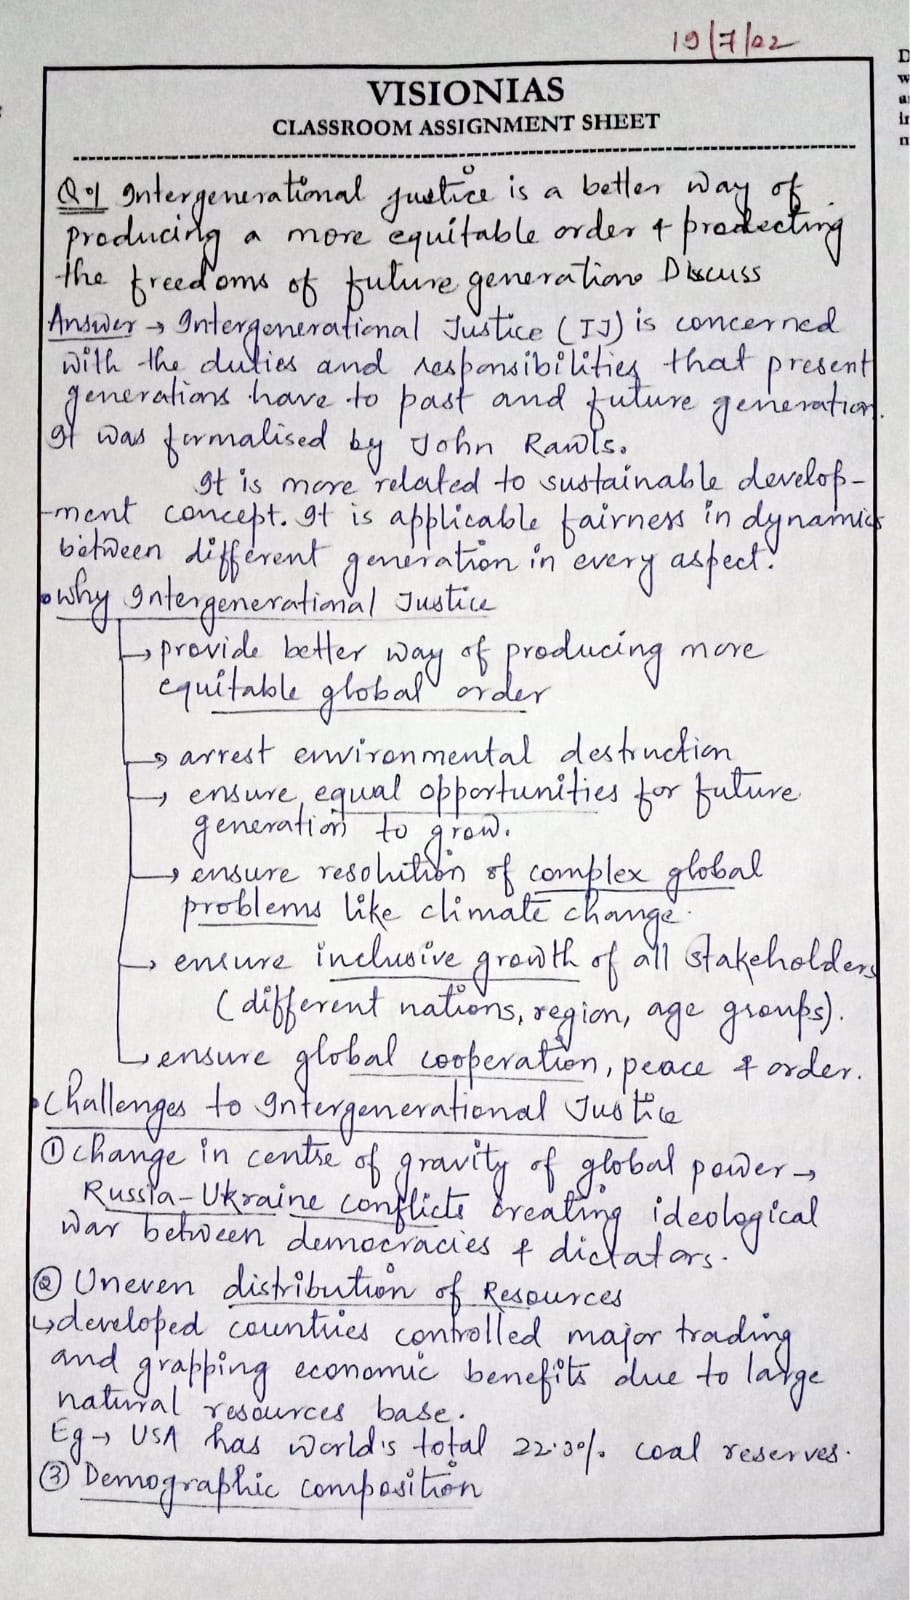 19/7/02
VISIONIAS
CLASSROOM ASSIGNMENT SHEET
Q.1 Intergenerational justice is a better way of
producing a more equitable order & prodecting
the freedoms of future generations Discuss
Answer → Intergenerational Justice (IJ) is concerned
with the duties and responsibilities that present
generations have to past and future generation.
It was formalised by John Rawls.
It is more related to sustainable develop-
-ment concept. It is applicable fairness in dynamics
between different generation in every aspect.
• Why Intergenerational Justice
→ provide better way of producing more
equitable global order
→ arrest environmental destruction
→ ensure equal opportunities for future
generation to grow.
→ ensure resolution of complex global
problems like climate change.
→ ensure inclusive growth of all stakeholders
(different nations, region, age groups).
→ ensure global cooperation, peace & order.
• Challenges to Intergenerational Justice
① Change in centre of gravity of global power →
Russia-Ukraine conflicts creating ideological
war between democracies & dictators.
② Uneven distribution of Resources
↳ developed countries controlled major trading
and grapping economic benefits due to large
natural resources base.
Eg → USA has world's total 22.3% coal reserves.
③ Demographic composition
D
w
a
in
n